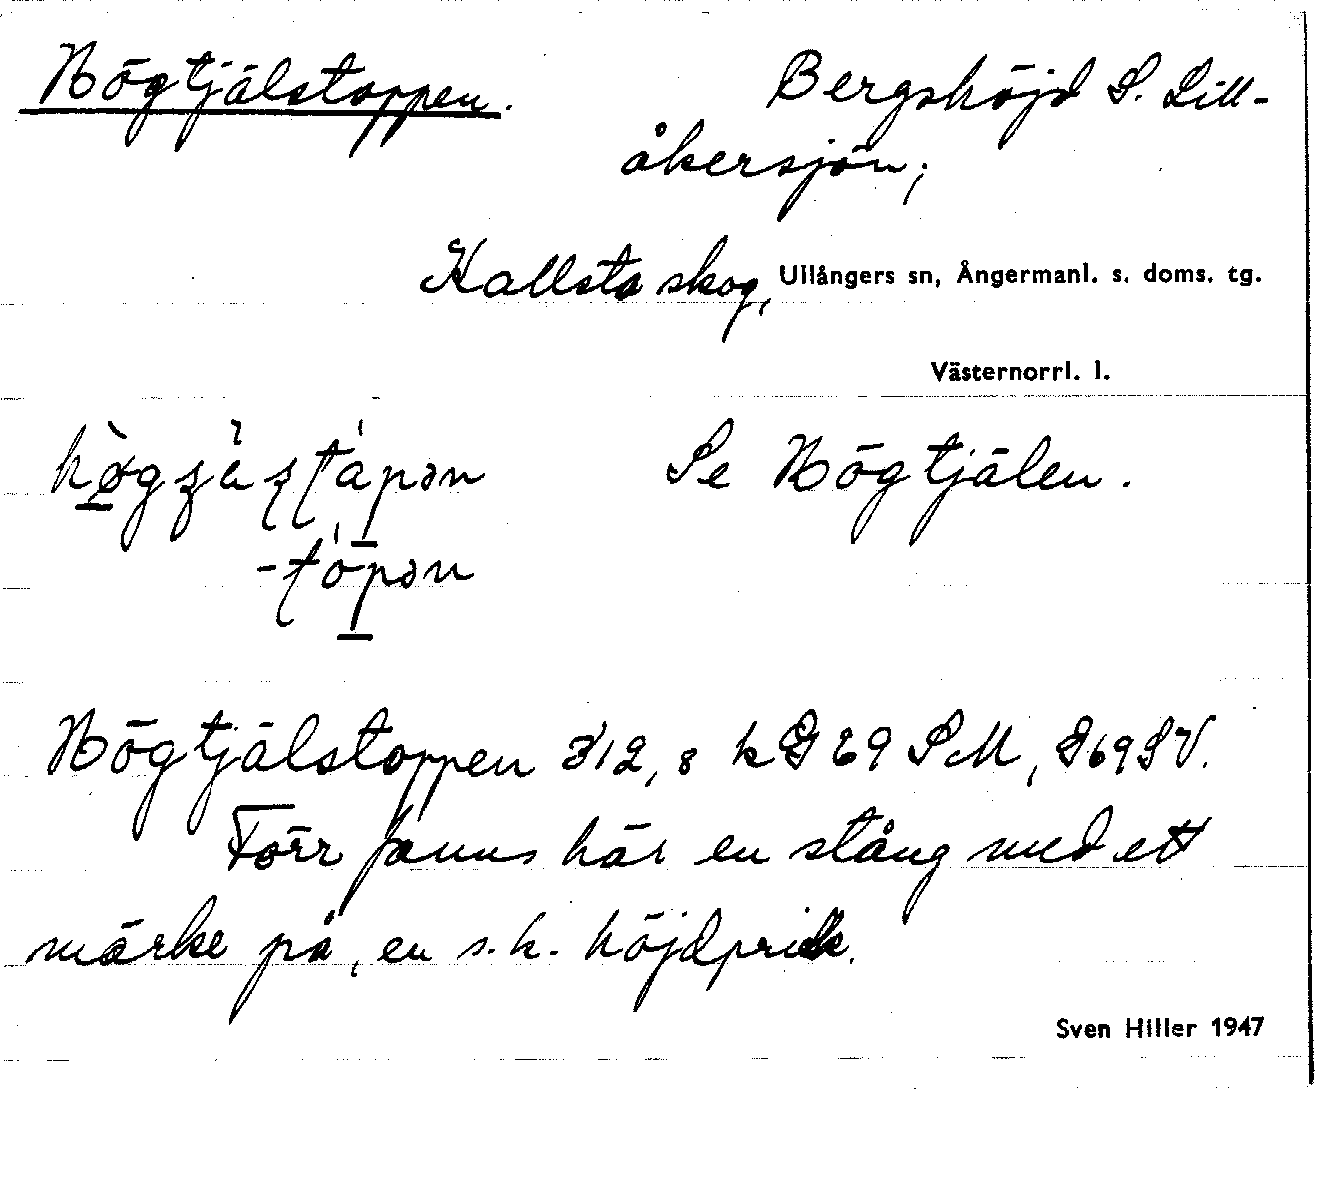 Högtjälstoppen. Bergshöjd S. Lill-
åkersjön;
Kallsta skog, Ullångers sn, Ångermanl. s. doms. tg.
Västernorrl. l.
Se Högtjälen.
Högtjälstoppen 312,8 SM,
Förr fanns här en stång med ett
märke på, en s.k. höjdprick.
Sven Hiller 1947